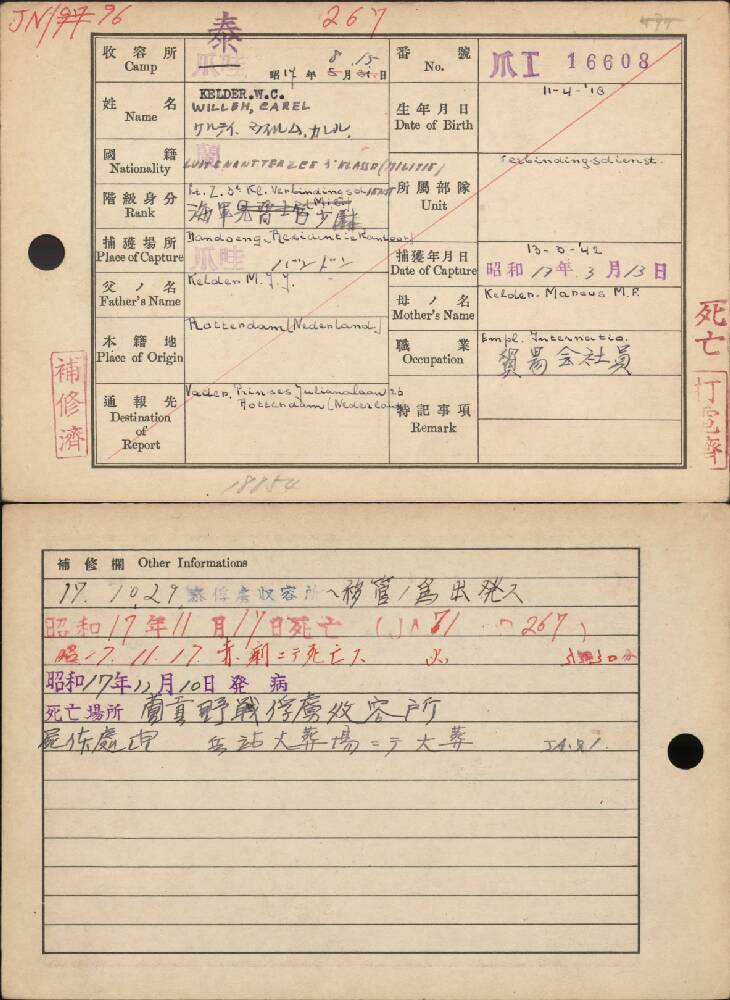 JN 96
267
泰
收容所 Camp
爪哇
昭17年8月15日
番號 No.
爪I 16608
姓名 Name
KELDER.W.C.
WILLEM, CAREL
生年月日 Date of Birth
11-4-'18
國籍 Nationality
蘭
LUITENANT TER ZEE 3e KLASSE (MILITIE)
階級身分 Rank
Lt. Z. 3e Kl. Verbindingsdienst
海軍
所屬部隊 Unit
Verbindingsdienst.
捕獲場所 Place of Capture
Bandoeng. Residentiekantoor
爪哇
バンドン
捕獲年月日 Date of Capture
13-3-'42
昭和17年3月13日
父ノ名 Father's Name
Kelder M. J. J.
母ノ名 Mother's Name
Kelder-Mareus M.F.
本籍地 Place of Origin
Rotterdam (Nederland.)
職業 Occupation
Empl. Internatio.
貿易会社員
通報先 Destination of Report
Vader. Prinses Julianalaan 26
Rotterdam (Nederland)
特記事項 Remark
補修濟
死亡
18854
補修欄 Other Informations
17.10.29 泰俘虜収容所ヘ移管ノ為出発ス
昭和17年11月17日死亡 (JA 81 267)
昭17.11.17. 赤痢ニテ死亡ス
昭和17年11月10日 発病
死亡場所 野戦俘虜收容所
屍体處理 兵站火葬場ニテ火葬 JA.81.